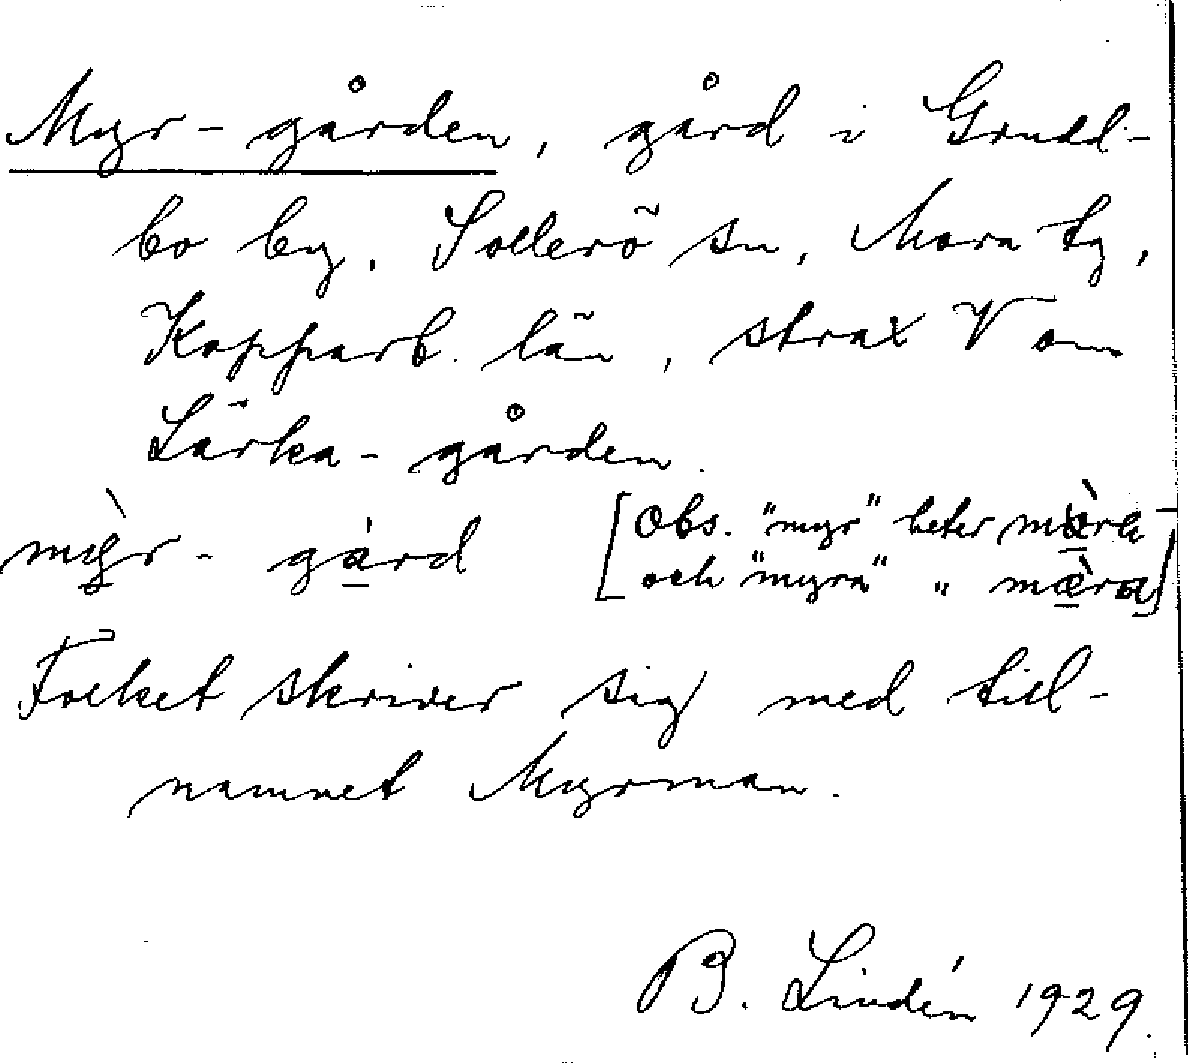 Myr-gården, gård i Grudd-
bo by, Sollerö sn, Mora tg,
Kopparb. län, strax V om
Lärka-gården.
mỳr- gárd [Obs. "myr" heter
och "myra" " mæ̀ra]
Folket skriver sig med till-
namnet Myrman.
B. Lindén 1929.